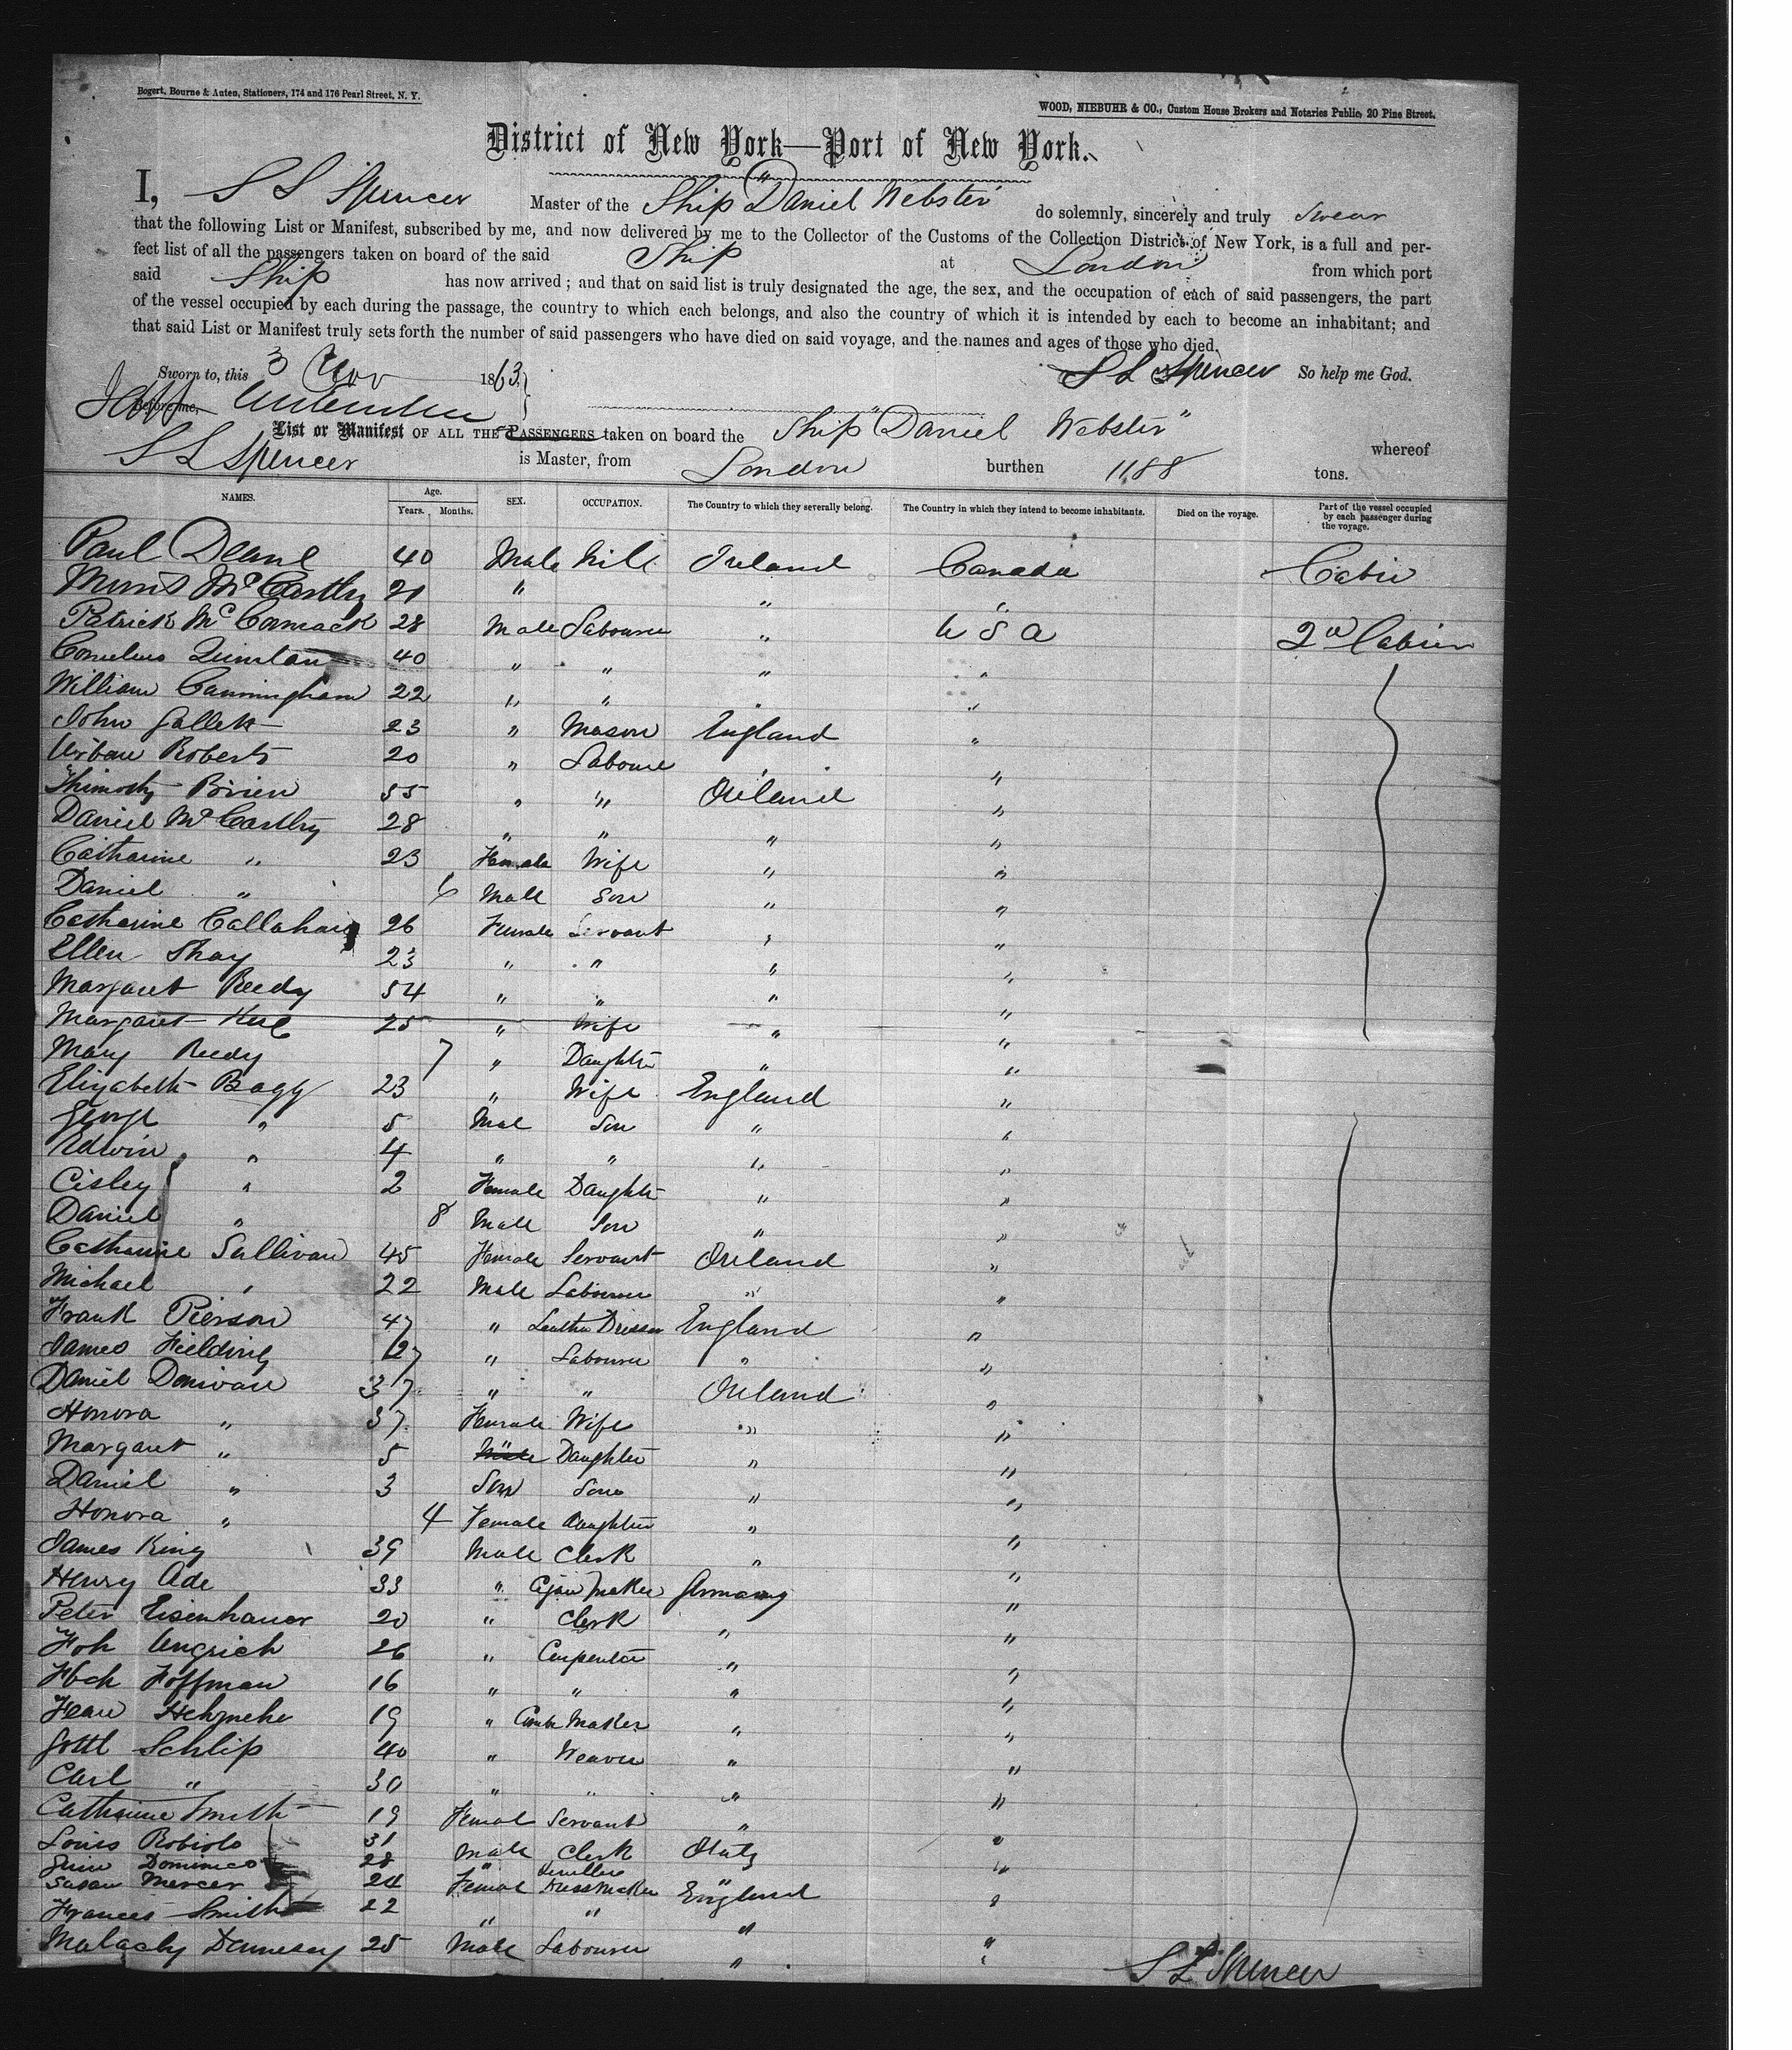 Bogert, Bourne & Auten, Stationers, 174 and 176 Pearl Street, N. Y.
WOOD, NIEBUHR & CO., Custom House Brokers and Notaries Public, 20 Pine Street.
District of New York—Port of New York.
I, S L Spencer Master of the Ship "Daniel Webster" do solemnly, sincerely and truly swear
that the following List or Manifest, subscribed by me, and now delivered by me to the Collector of the Customs of the Collection District of New York, is a full and per-
fect list of all the passengers taken on board of the said Ship at London from which port
said Ship has now arrived; and that on said list is truly designated the age, the sex, and the occupation of each of said passengers, the part
of the vessel occupied by each during the passage, the country to which each belongs, and also the country of which it is intended by each to become an inhabitant; and
that said List or Manifest truly sets forth the number of said passengers who have died on said voyage, and the names and ages of those who died.
Sworn to, this 3 Nov 1863 S L Spencer So help me God.
Before me,
List or Manifest OF ALL THE PASSENGERS taken on board the Ship "Daniel Webster" whereof
S L Spencer is Master, from London burthen 1188 tons.
NAMES. Age. Years. Months. SEX. OCCUPATION. The Country to which they severally belong. The Country in which they intend to become inhabitants. Died on the voyage. Part of the vessel occupied by each passenger during the voyage.
Paul Deane 40 Male Nill Ireland Canada Cabin
McCarthy 21 " " "
Patrick McCormack 28 Male Labourer " U S A 2d Cabin
Cornelius Quinlan 40 " " " "
William Cunningham 22 " " " "
John 23 " Mason England "
Urban Roberts 20 " Laboure " "
Thimothy Brien 55 " " Ireland "
Daniel McCarthy 28 " " " "
Catharine " 23 Female Wife " "
Daniel " 6 Male Son " "
Catharine Callahan 26 Female Servant " "
Ellen Shay 23 " " " "
Margaret Reedy 54 " " " "
Margaret 25 " Wife " "
Mary Reedy 7 " Daughter " "
Elizabeth Bagg 23 " Wife England "
George " 5 Male Son " "
Edwin " 4 " " " "
Cisley " 2 Female Daughter " "
Daniel " 8 Male Son " "
Catharine Sullivan 45 Female Servant Ireland "
Michael " 22 Male Labourer " "
Frank Pierson 47 " Leather Dresser England "
James Fielding 27 " Labourer " "
Daniel Donivan 37 " " Ireland "
Honora " 37 Female Wife " "
Margaret " 5 Male Daughter " "
Daniel " 3 Son Son " "
Honora " 4 Female Daughter " "
James King 39 Male Clerk " "
Henry Ade 33 " Cigar Maker Germany "
Peter Eisenhauer 20 " Clerk " "
Joh Ungrich 26 " Carpenter " "
Hoffman 16 " " " "
Jean 19 " Maker " "
Gottl Schlip 40 " Weaver " "
Carl " 30 " " " "
Catharine Smith 19 Femal Servant " "
Louis Robiolo 31 Male Clerk "
Dominico 28 " "
Susan Mercer 24 Femal Dressmaker England "
Frances Smith 22 " " " "
Malachy Dennesey 25 Male Labourer " "
S L Spencer